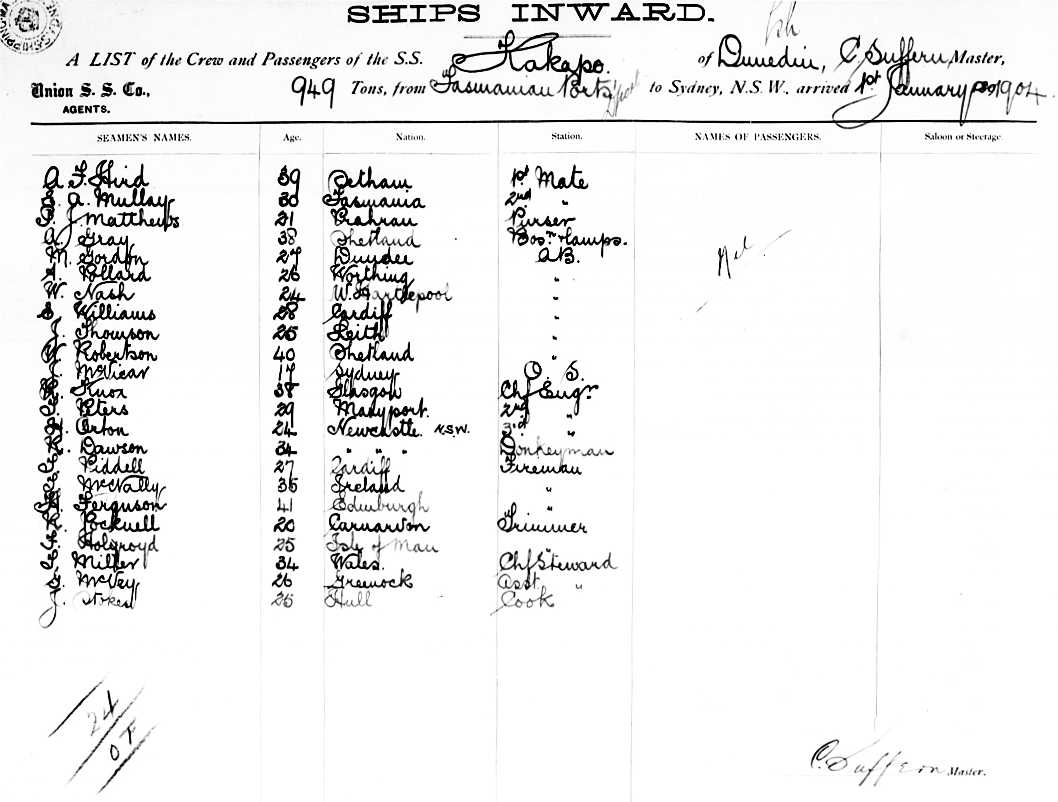 SHIPS INWARD.
A LIST of the Crew and Passengers of the S.S. Kakapo of Dunedin, C Suffern, Master,
Union S. S. Co., AGENTS. 949 Tons, from Tasmanian Ports to Sydney, N.S.W., arrived 1st January 1904.
SEAMEN'S NAMES. Age. Nation. Station. NAMES OF PASSENGERS. Saloon or Steerage.
A. F. Hird 39 1st Mate
A. Mullay 30 Tasmania 2nd "
J Matthews 21 Prahran Purser
A. Gray 38 Shetland Bosn & Lamps.
M. Gordon 27 Dundee A.B.
Pollard 26 Worthing "
W. Nash 24 W. Hartlepool "
S. Williams 28 Cardiff "
J. Thomson 25 Leith "
Robertson 40 Shetland "
McVicar 17 Sydney O. S.
Knox 38 Glasgow Chf Engr
Peters 29 Maryport. 2nd "
Orton 24 Newcastle N.S.W. 3rd "
Dawson 34 " " " Donkeyman
Piddell 27 Cardiff Fireman
McNally 35 Ireland "
Ferguson 41 Edinburgh "
Pocknell 20 Carnarvon Trimmer
Holyroyd 25 Isle of Man "
Miller 34 Wales. Chf Steward
McVey 26 Greenock Asst "
J. Stokes 25 Hull Cook
Nil
24
C. Suffern Master.